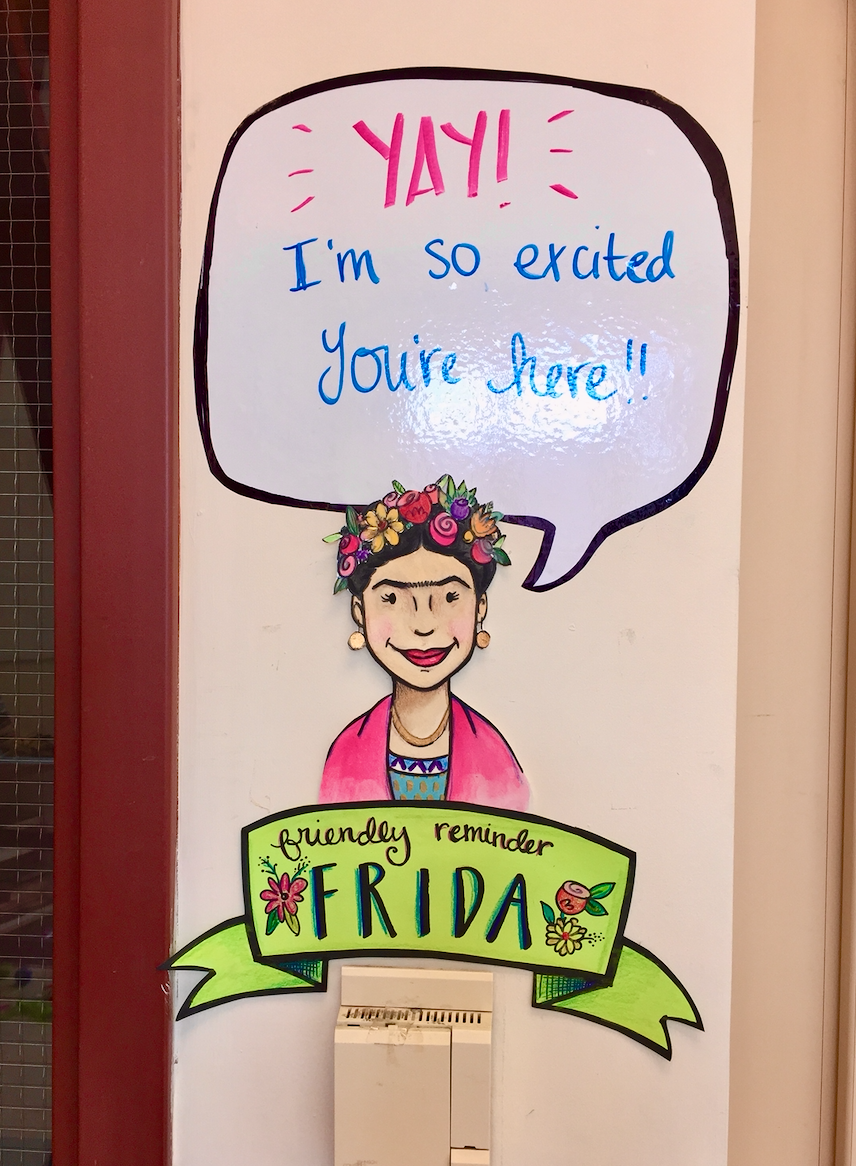 YAY!
I'm so excited
You're here!!
friendly reminder
FRIDA